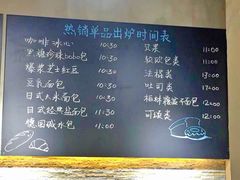 热销单品出炉时间表
咖啡冰心 10:30
黑糖珍珠bobo包 10:30
爆浆芝士红豆 10:30
豆乳面包 10:30
日式大米面包 10:30
日式经典盐面包 10:30
德国碱水包 11:00
贝果 11:00
软欧包类 11:00
法棍类 11:00
吐司类 11:00
12:00
可颂类 12:00